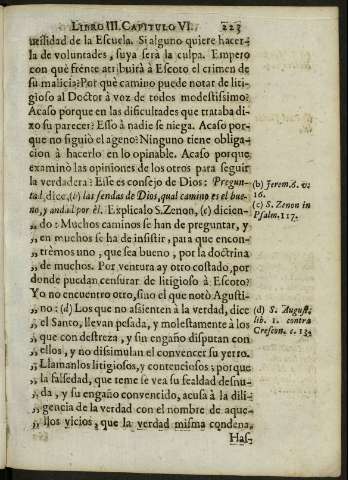 LIBRO III. CAPITULO VI. 223
uessidad de la Escuela. Si alguno quiere hacer-
la de voluntades, suya serà la culpa. Empero
con què frẽte atribuirà à Escoto el crimen de
su malicia? Por què camino puede notar de liti-
gioso al Doctor à voz de todos modestissimo?
Acaso porque en las dificultades que trataba di-
xo su parecer? Esso à nadie se niega. Acaso por-
que no siguiò el ageno? Ninguno tiene obliga-
cion à hacerlo en lo opinable. Acaso porque
examinò las opiniones de los otros para seguir
la verdadera? Esse es consejo de Dios: Pregun-
tad, dice, (b) las sendas de Dios, qual camino es el bue-
no, y andad por èl. Explicalo S. Zenon, (c) dicien-
,, do: Muchos caminos se han de preguntar, y
,, en muchos se ha de insistir, para que encon-
,, trèmos uno, que sea bueno, por la doctrina
,, de muchos. Por ventura ay otro costado, por
donde puedan censurar de litigioso à Escoto?
Yo no encuentro otro, sino el que notò Agusti-
,, no: (d) Los que no assienten à la verdad, dice
,, el Santo, llevan pesada, y molestamente à los
,, que con destreza, y sin engaño disputan con
,, ellos, y no dissimulan el convencer su yerro.
,, Llamanlos litigiosos, y contenciosos; porque
,, la falsedad, que teme se vea su fealdad desnu-
,, da, y su engaño convencido, acusa à la dili-
,, gencia de la verdad con el nombre de aque-
,, llos vicios, que la verdad misma condena.
Has-
(b) Jerem. 6. v.
16.
(c) S. Zenon in
Psalm. 117.
(d) S. August.
lib. 1. contra
Crescon. c. 13.